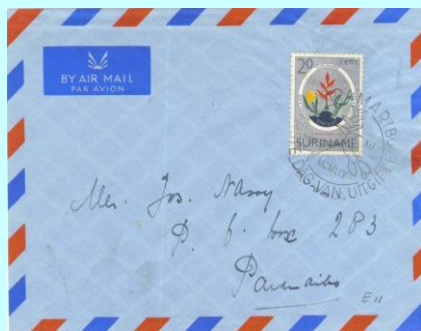 BY AIR MAIL
PAR AVION
20 cent
SURINAME
DAG VAN UITGIFTE
Jos. Nassy
P. O. box 283
Paramaribo
E 11